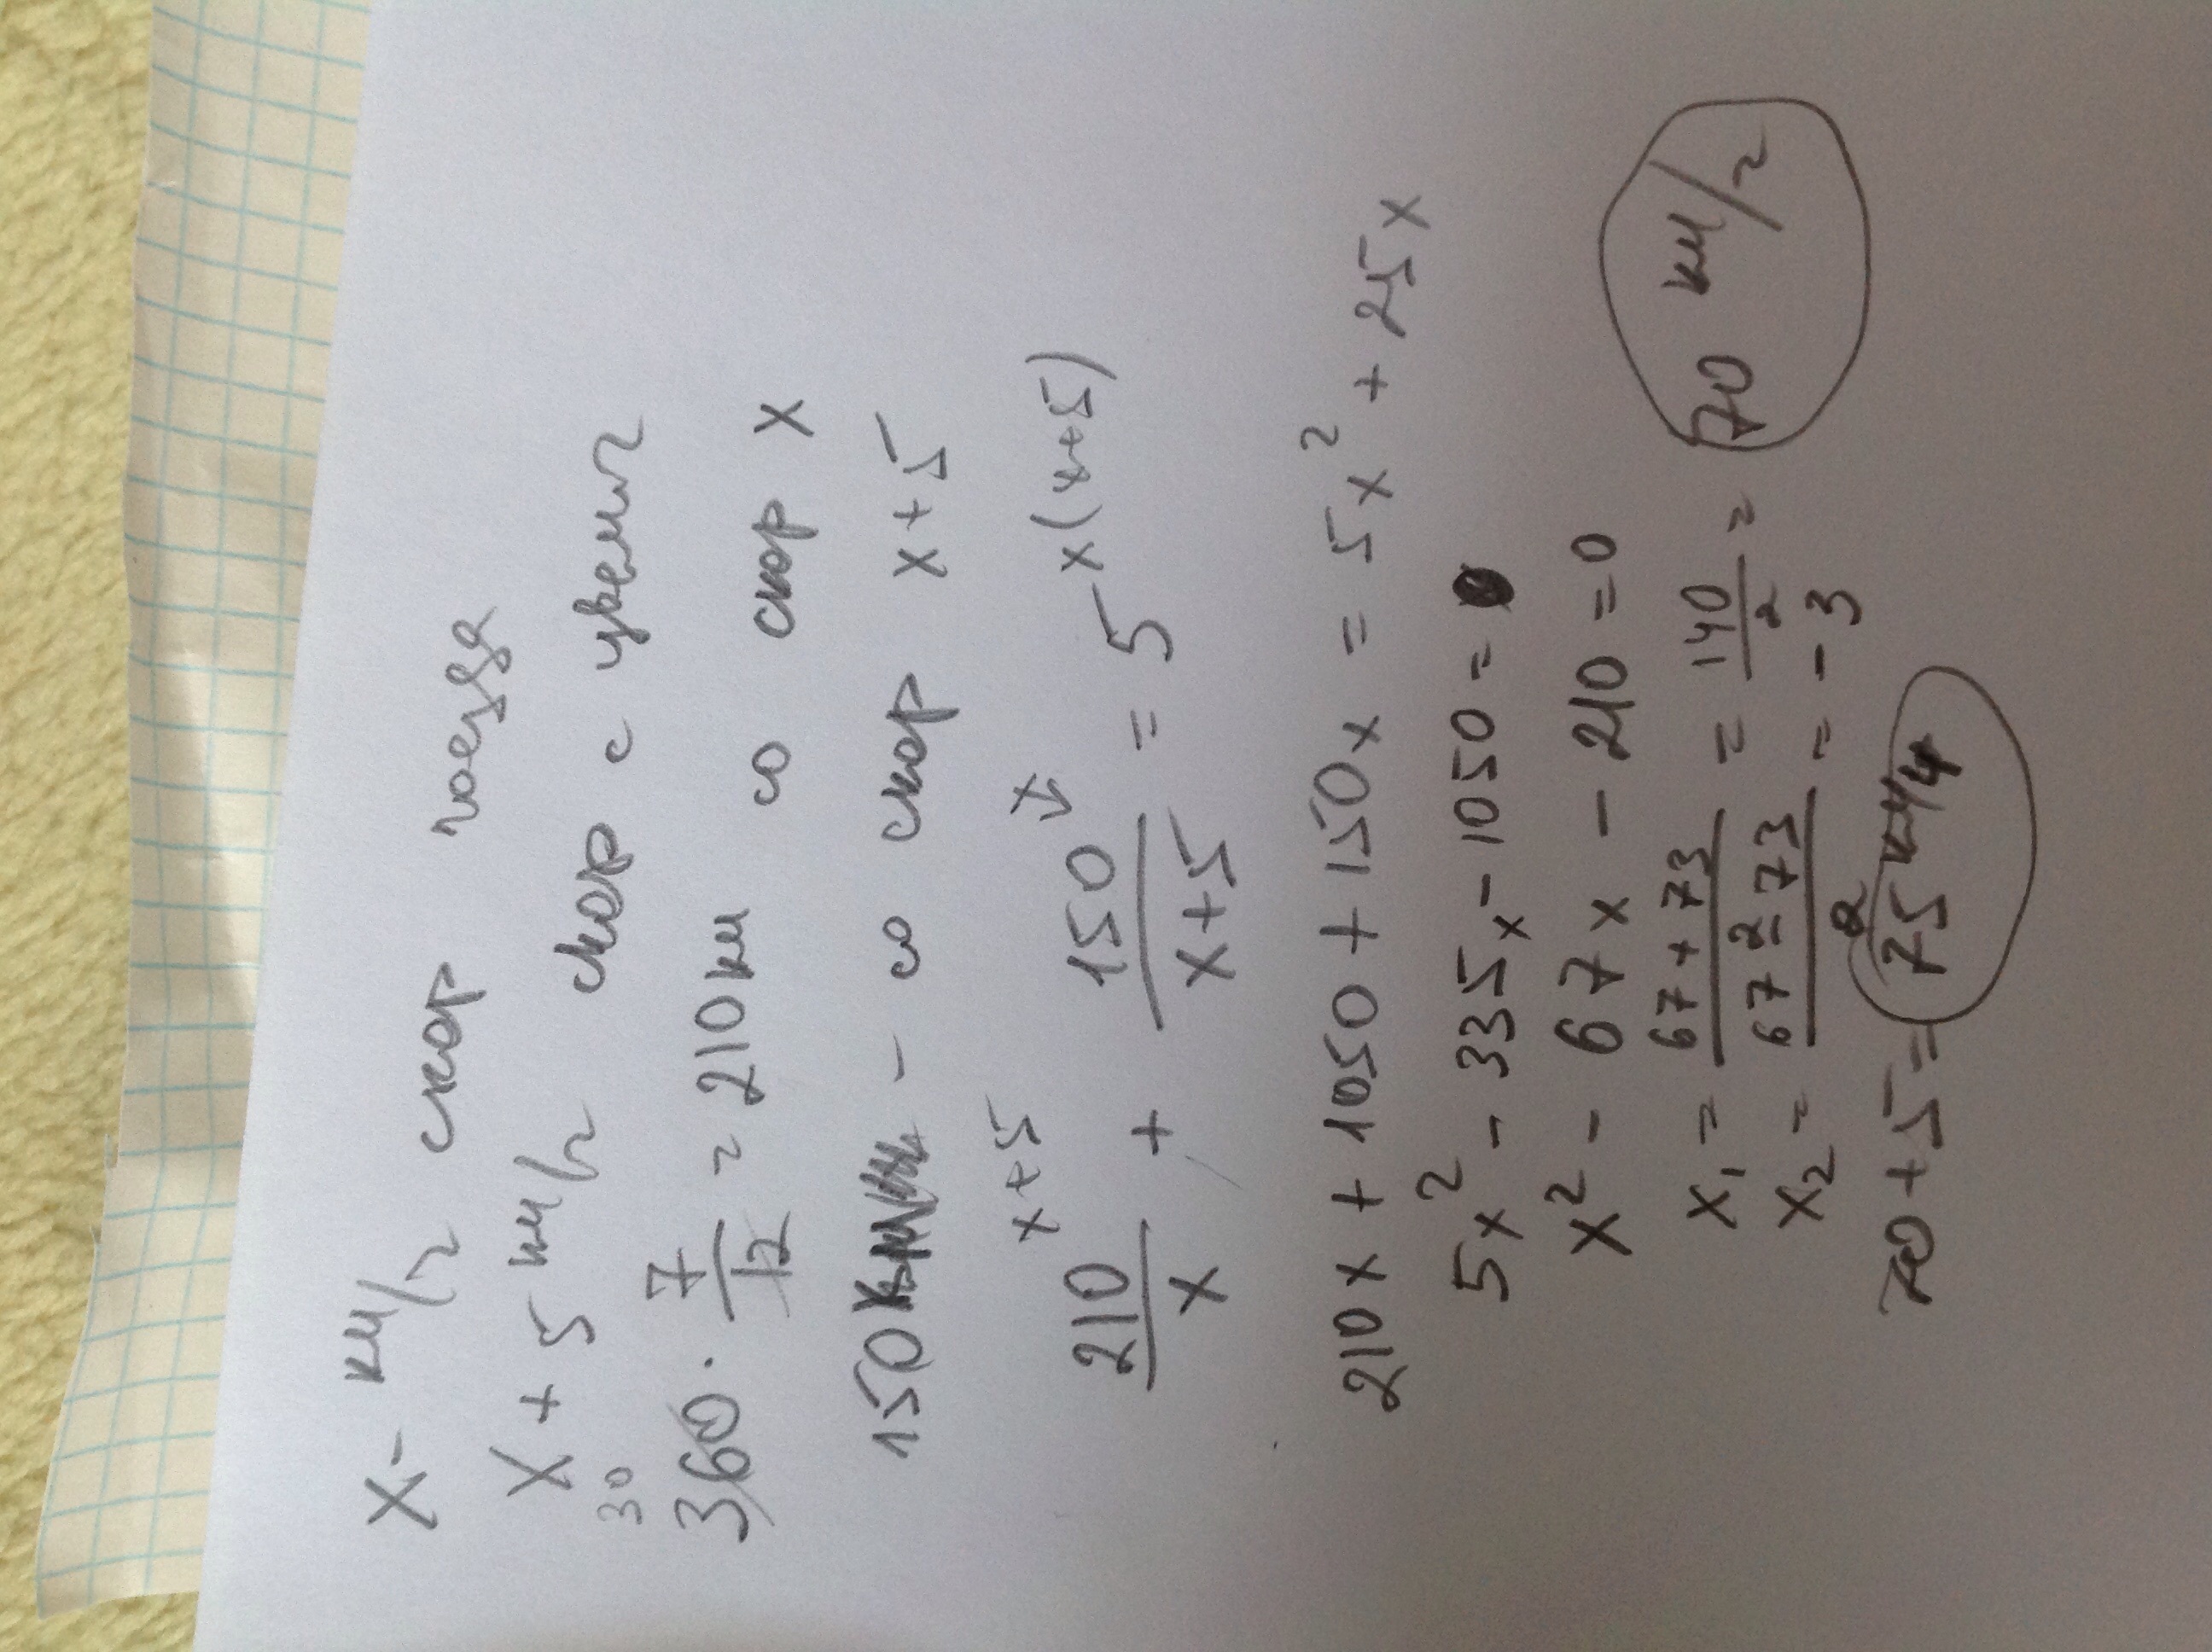 x - км/ч скор поезда
x + 5 км/ч скор с увелич
30
360 · 7/12 = 210 км со скор x
150 - со скор x+5
x+5 x x(x+5)
210/x + 150/x+5 = 5
210x + 1050 + 150x = 5x² + 25x
5x² - 335x - 1050 = 0
x² - 67x - 210 = 0
x₁ = 67+73/2 = 140/2 = 70 км/ч
x₂ = 67-73/2 = -3
70+5 = 75 км/ч